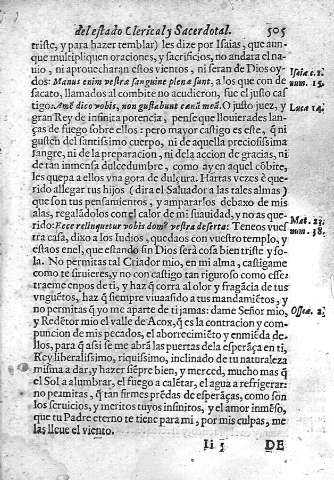 del estado Clerical, y Sacerdotal. 505
triste, y para hazer temblar) les dize por Isaias, que aun-
que multipliquen oraciones, y sacrificios, no andara el na-
uio, ni aprouecharan estos vientos, ni seran de Dios oy-
dos: Manus enim vestræ sanguine plenæ sunt, a los que con de- Isaiæ c.1.
sacato, llamados al combite no acudieron, fue el justo cas num. 15.
tigo: Amē dico vobis, non gustabunt cœnā meā. O justo juez, y Lucæ 14.
gran Rey de infinita potencia, pense que llouierades lan-
ças de fuego sobre ellos: pero mayor castigo es este, q̄ ni
gusten del santissimo cuerpo, ni de aquella preciosissima
sangre, ni de la preparacion, ni de la accion de gracias, ni
de tan inmensa dulcedumbre, como ay en aquel cōbite,
les quepa a ellos vna gota de dulçura. Hartas vezes è que-
rido allegar tus hijos (dira el Saluador a las tales almas)
que son tus pensamientos, y ampararlos debaxo de mis
alas, regalādolos con el calor de mi suauidad, y no as que
rido: Ecce relinquetur vobis domꝰ vestra deserta: Teneos vues Mat. 23.
tra casa, dixo a los Indios, quedaos con vuestro templo, y num. 38.
estaos en el, que estando sin Dios serà cosa bien triste y so-
la. No permitas tal Criador mio, en mi alma, castigame
como te siruieres, y no con castigo tan riguroso como esse:
traeme enpos de ti, y haz q̄ corra al olor y fragācia de tus
vngüētos, haz q̄ siempre viua asido a tus mandamiētos, y
no permitas q̄ yo me aparte de ti jamas: dame Señor mio, Oseæ. 2.
y Redētor mio el valle de Acos, q̄ es la contracion y com-
puncion de mis pecados, el aborrecimiēto y enmiēda de-
llos, para q̄ assi se me abrā las puertas dela esperāça en ti,
Rey liberalissimo, riquissimo, inclinado de tu naturaleza
misma a dar, y hazer siēpre bien, y merced, mucho mas q̄
el Sol a alumbrar, el fuego a calētar, el agua a refrigerar:
no pęrmitas, q̄ tan firmes prēdas de esperāças, como son
los seruicios, y meritos tuyos infinitos, y el amor inmēso,
que tu Padre eterno te tiene para mi, por mis culpas, me
las lleue el viento.
Ii 5 DE